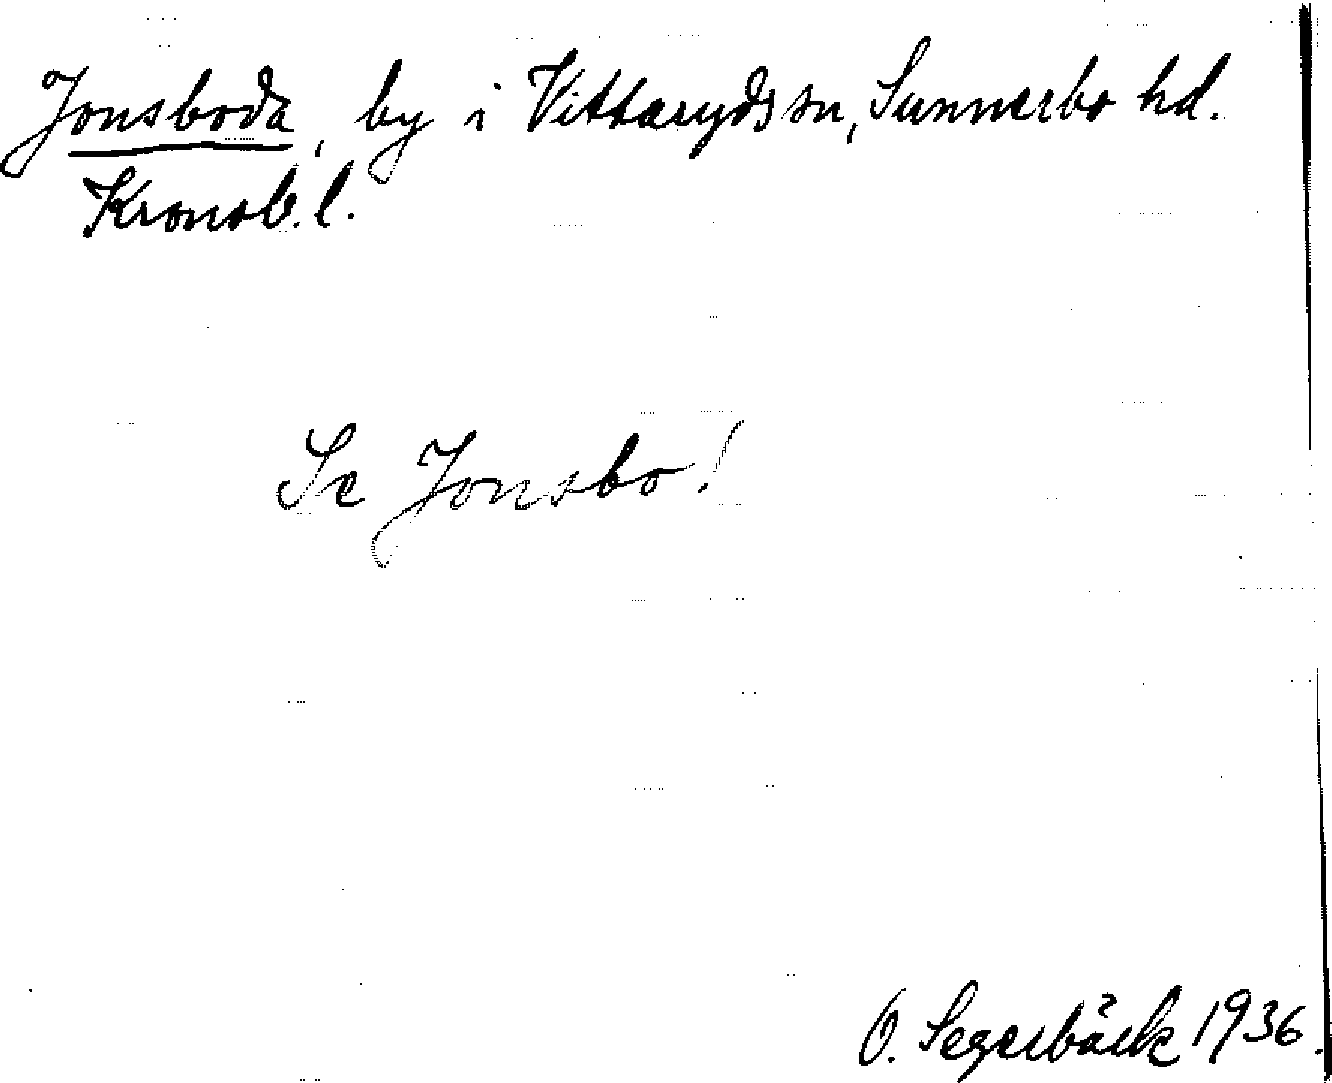 Jonsboda, by i Vittaryds sn, Sunnerbo hd.
Kronob. l.
Se Jonsbo!
O. Segerbäck 1936.